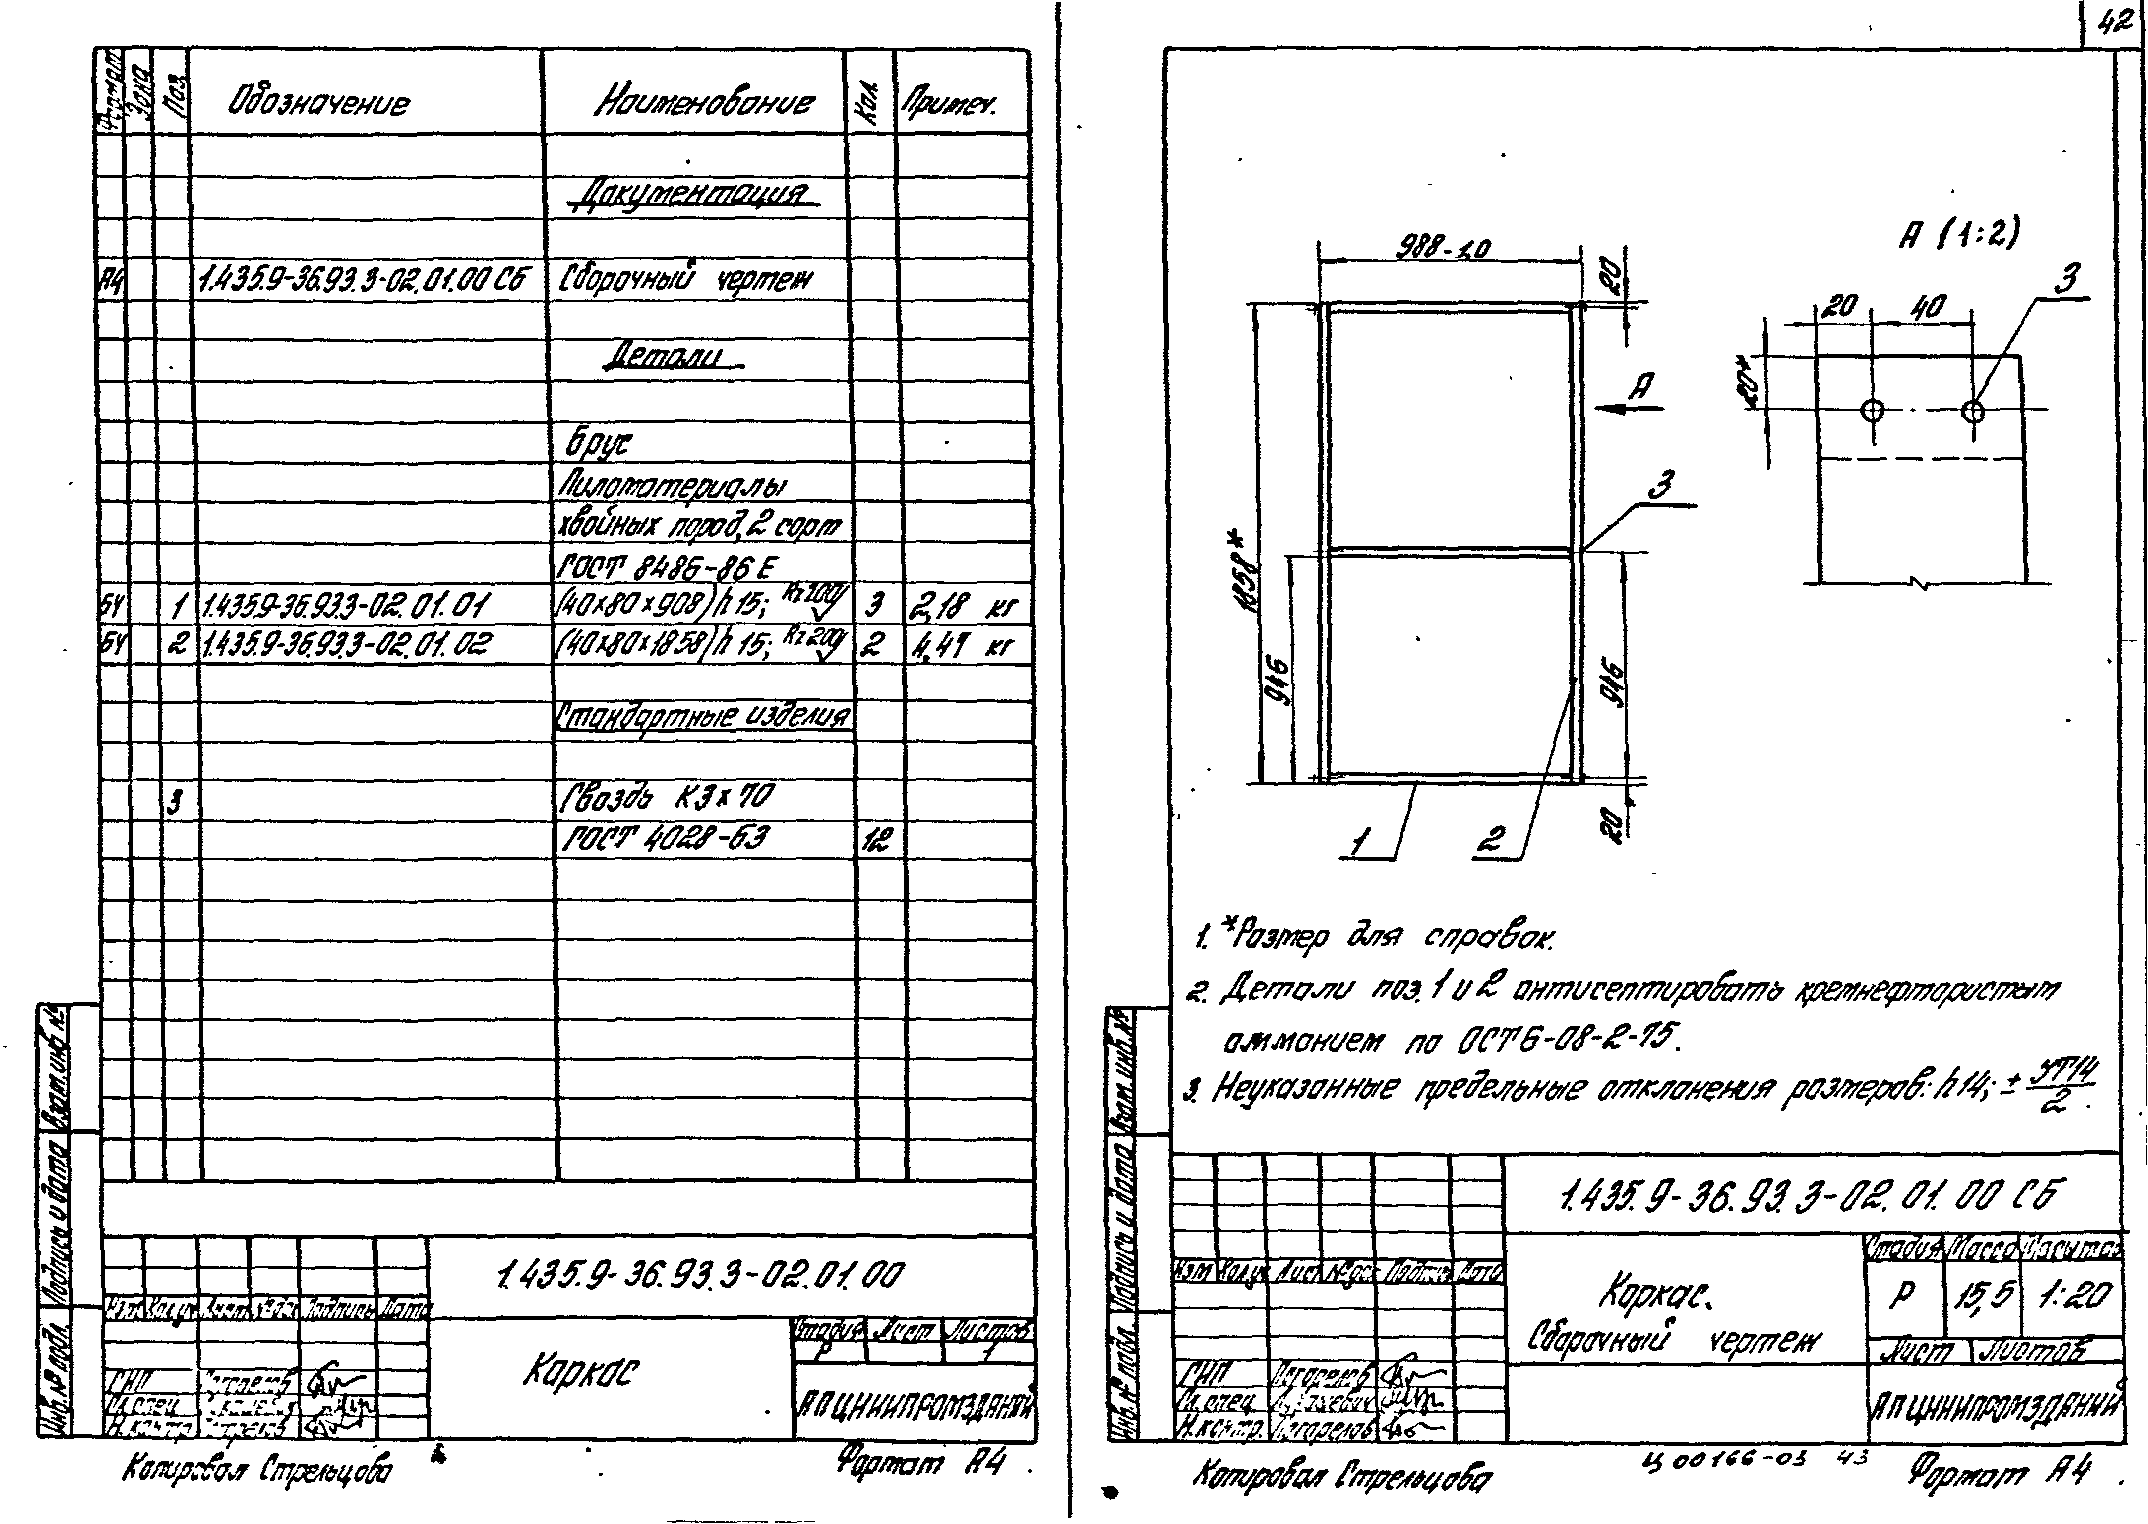 42
Формат Зона Поз. Обозначение Наименование Кол. Примеч.
Документация
А4 1.435.9-36.93.3-02.01.00 СБ Сборочный чертеж
Детали
Брус
Пиломатериалы
хвойных пород, 2 сорт
ГОСТ 8486-86 Е
БЧ 1 1.435.9-36.93.3-02.01.01 (40×80×908) h 15; Rz 200 3 2,18 кг
БЧ 2 1.435.9-36.93.3-02.01.02 (40×80×1858) h 15; Rz 200 2 4,47 кг
Стандартные изделия
3 Гвоздь К3×70
ГОСТ 4028-63 12
Взам. инв. №
Подпись и дата
Инв. № подл.
1.435.9-36.93.3-02.01.00
Изм. Кол.уч Лист № док Подпись Дата
Каркас
Стадия Лист Листов
Р 1
ГИП Погорелов
Гл. спец
Н. контр
АП ЦНИИПРОМЗДАНИЙ
Копировал Стрельцова
Формат А4
988-1.0
20
А (1:2)
3
20 40
20*
А
3
1858*
946
946
20
1 2
1. *Размер для справок.
2. Детали поз. 1 и 2 антисептировать кремнефтористым
аммонием по ОСТ 6-08-2-75.
3. Неуказанные предельные отклонения размеров: h 14; ± УТ14/2.
Взам. инв. №
Подпись и дата
Инв. № подл.
1.435.9-36.93.3-02.01.00 СБ
Изм Кол.уч Лист № док Подпись Дата
Каркас.
Сборочный чертеж
Стадия Масса Масштаб
Р 15,5 1:20
Лист Листов
ГИП Погорелов
Гл. спец
Н. контр. Погорелов
АП ЦНИИПРОМЗДАНИЙ
Копировал Стрельцова
Ц 00166-03 43
Формат А4